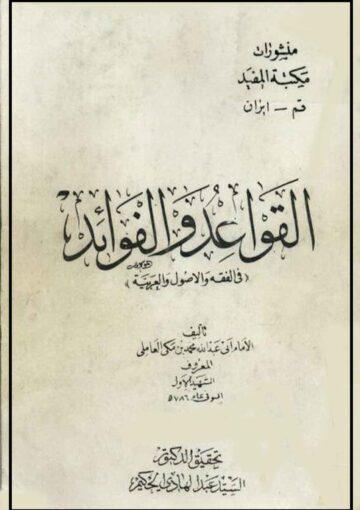 منشورات
مكتبة المفيد
قم — ايران
القواعد والفوائد
(في الفقه والاصول والعربية)
تأليف
الامام أبي عبدالله محمد بن مكي العاملي
المعروف
الشهيد الاول
المتوفى عام ٧٨٦ هـ
تحقيق الدكتور
السيد عبد الهادي الحكيم